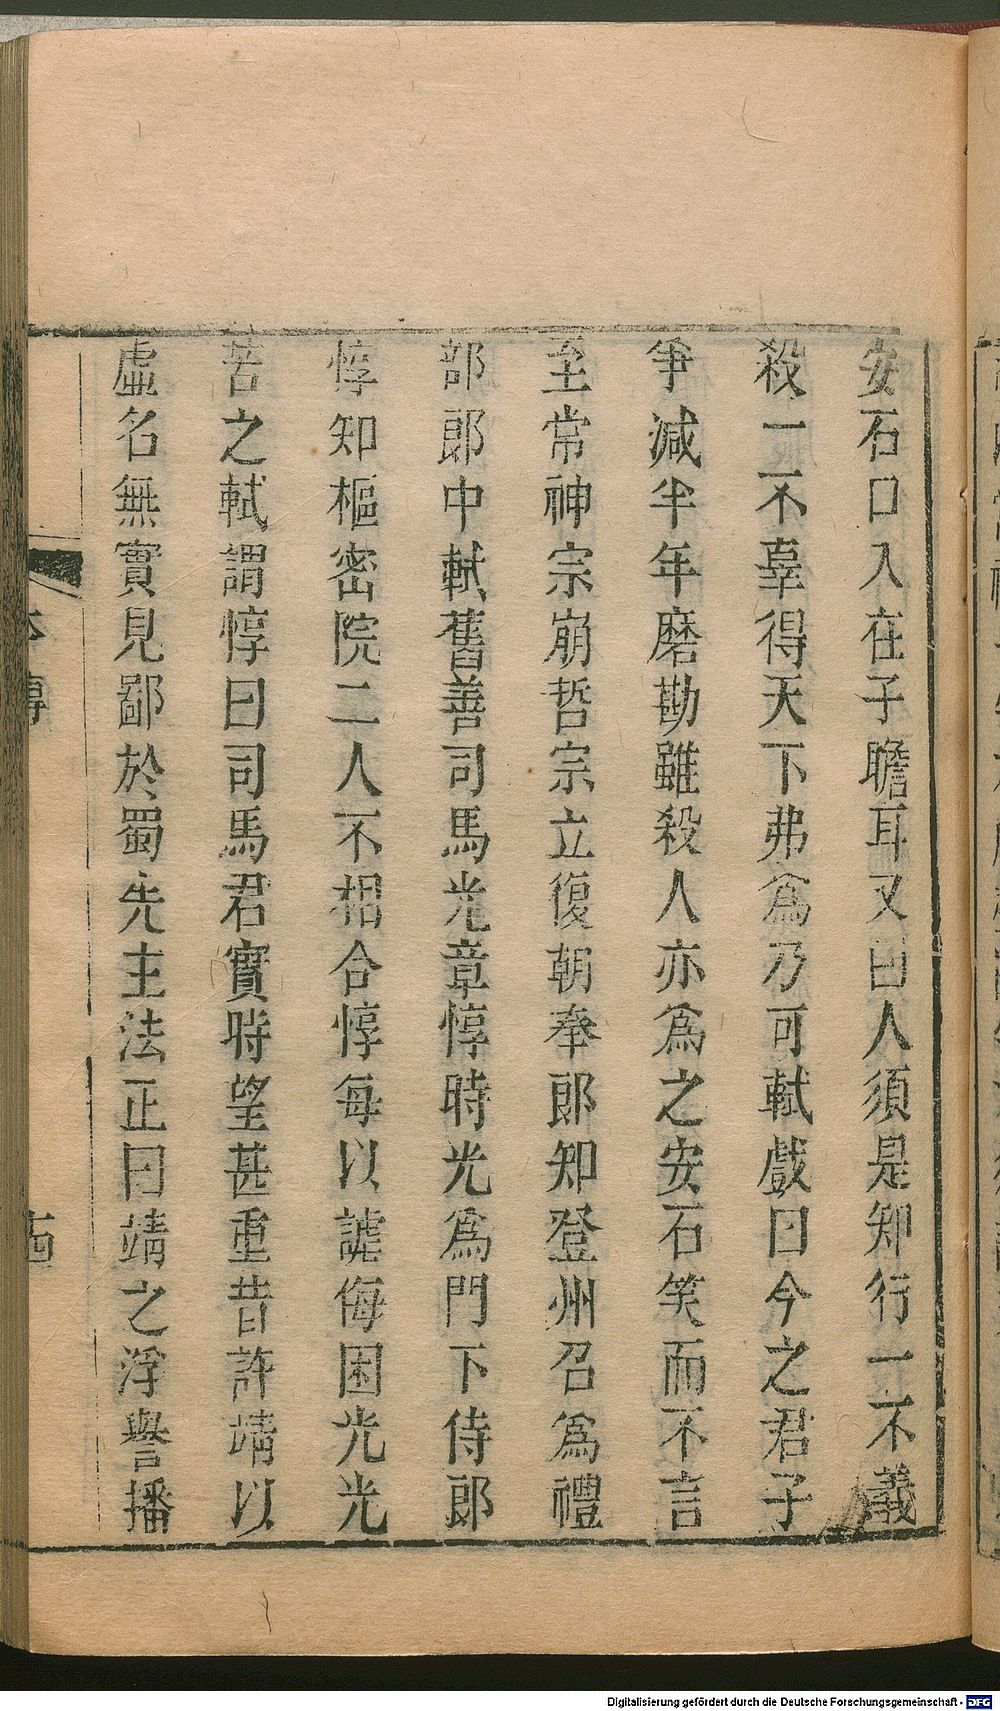 安石口入在子瞻耳又曰人須是知行一不義
殺一不辜得天下弗為乃可軾戲曰今之君子
爭減半年磨勘雖殺人亦為之安石笑而不言
至常神宗崩哲宗立復朝奉郎知登州召為禮
部郎中軾舊善司馬光章惇時光為門下侍郎
惇知樞密院二人不相合惇每以謔侮困光光
苦之軾謂惇曰司馬君實時望甚重昔許靖以
虛名無實見鄙於蜀先主法正曰靖之浮譽播
本傳
十四
Digitalisierung gefördert durch die Deutsche Forschungsgemeinschaft - DFG